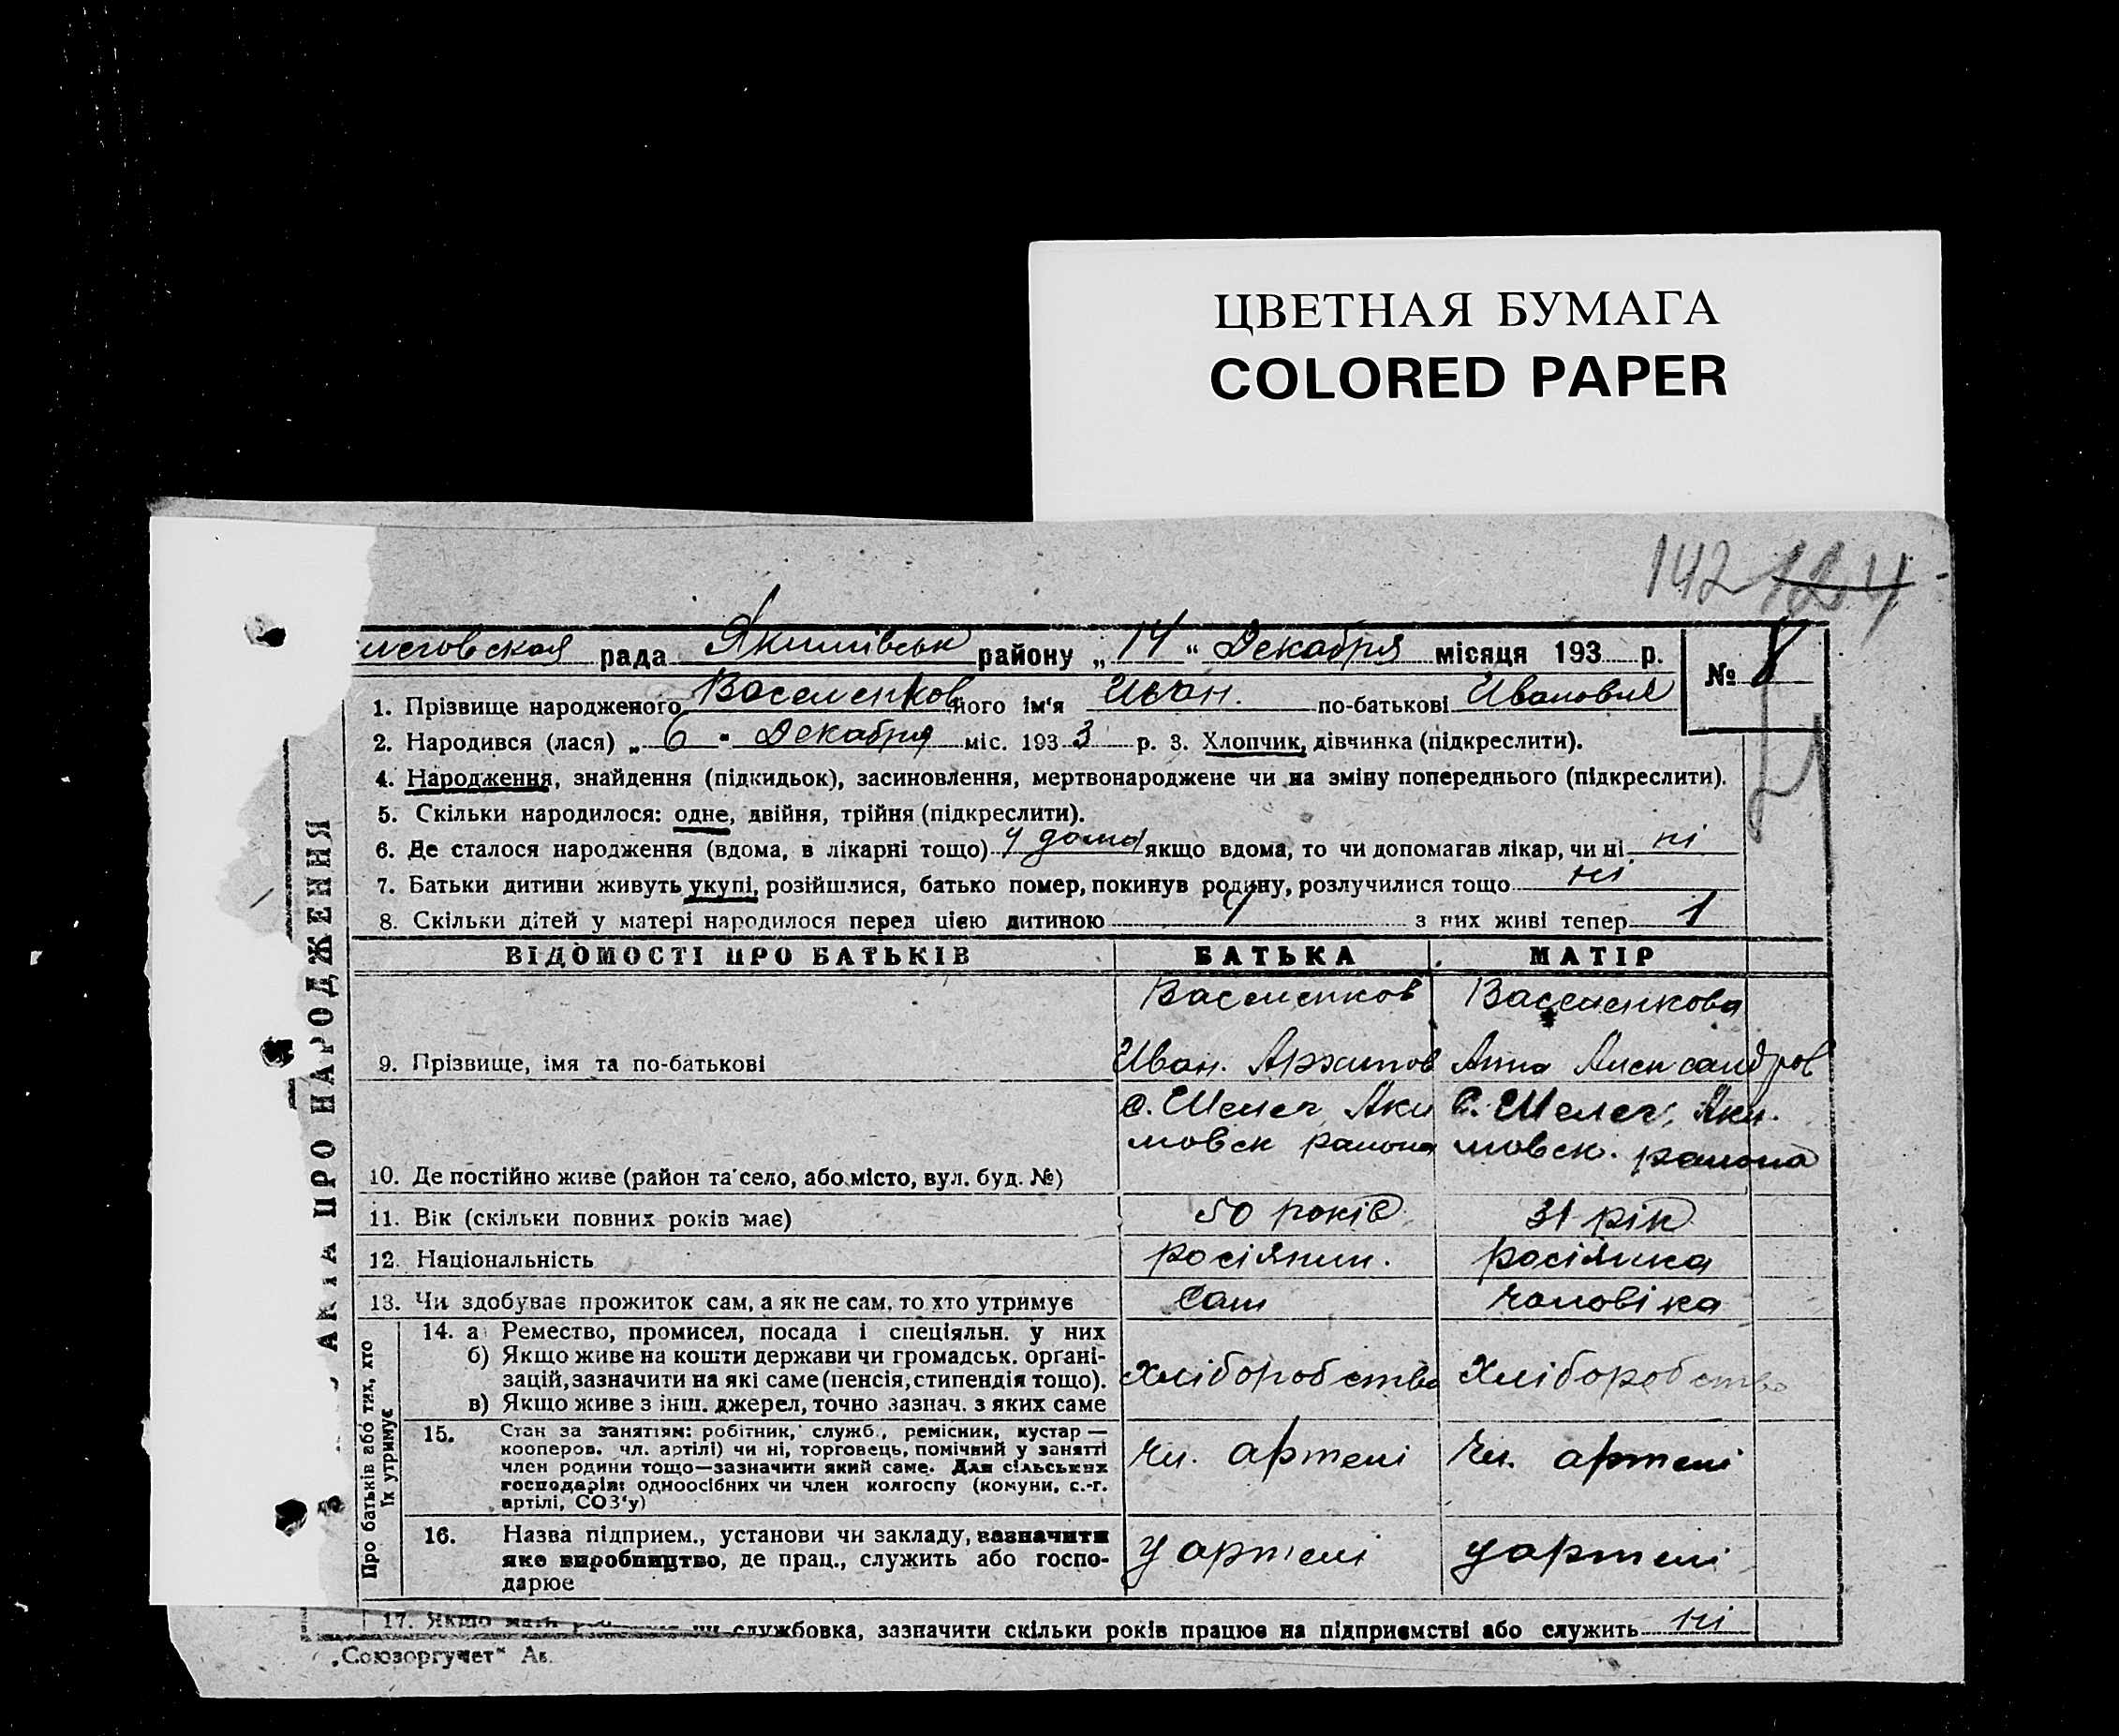 ЦВЕТНАЯ БУМАГА
COLORED PAPER
142 124
рада Якимівськ району „ 14 “ Декабря місяця 193 р.
№ 8
1. Прізвище народженого Васеленков його ім‘я Иван. по-батькові Иванович
2. Народився (лася) „ 6 “ Декабря міс. 193 3 р. 3. Хлопчик, дівчинка (підкреслити).
4. Народження, знайдення (підкидьок), засиновлення, мертвонароджене чи на зміну попереднього (підкреслити).
5. Скільки народилося: одне, двійня, трійня (підкреслити).
6. Де сталося народження (вдома, в лікарні тощо) у дома якщо вдома, то чи допомагав лікар, чи ні ні
7. Батьки дитини живуть укупі, розійшлися, батько помер, покинув родину, розлучилися тощо ні
8. Скільки дітей у матері народилося перед цією дитиною з них живі тепер 1
АКТА ПРО НАРОДЖЕННЯ
ВІДОМОСТІ ПРО БАТЬКІВ БАТЬКА МАТІР
Васеленков Васеленкова
9. Прізвище, імя та по-батькові Иван. Архипов Анна Александров
с. Шелег Аки с. Шелег, Аки.
мовск района мовск. района
10. Де постійно живе (район та село, або місто, вул. буд. №)
11. Вік (скільки повних років має) 50 років 31 рік
12. Національність росіянин. росіянка
13. Чи здобуває прожиток сам, а як не сам, то хто утримує Сам чоловіка
Про батьків або тих, хто їх утримує
14. а Ремество, промисел, посада і спеціяльн. у них
б) Якщо живе на кошти держави чи громадськ. органі-
зацій, зазначити на які саме (пенсія, стипендія тощо). хліборобство хліборобство
в) Якщо живе з інш. джерел, точно зазнач. з яких саме
15. Стан за заняттям: робітник, служб., ремісник, кустар —
кооперов. чл. артілі) чи ні, торговець, помічний у занятті
член родини тощо—зазначити який саме. Для сільських
господарів: одноосібних чи член колгоспу (комуни, с.-г.
артілі, СОЗ‘у)
чл. артелі чл. артелі
16. Назва підприєм., установи чи закладу, зазначити
яке виробництво, де прац., служить або госпо-
дарює
у артелі у артелі
17. Якщо мати чи службовка, зазначити скільки років працює на підприємстві або служить ні
„Союзоргучет“ Ак.